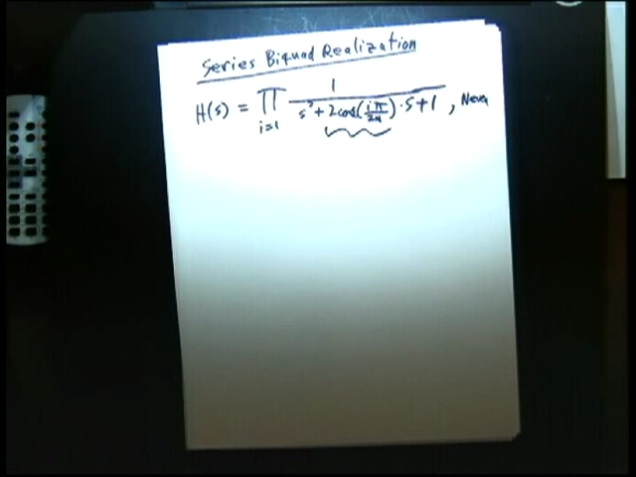 Series Biquad Realization
H(s) = ∏ i=1 1 / (s² + 2cos(iπ/2n)·s+1) , Neven